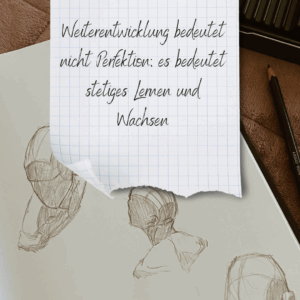 Weiterentwicklung bedeutet
nicht Perfektion; es bedeutet
stetiges Lernen und
Wachsen